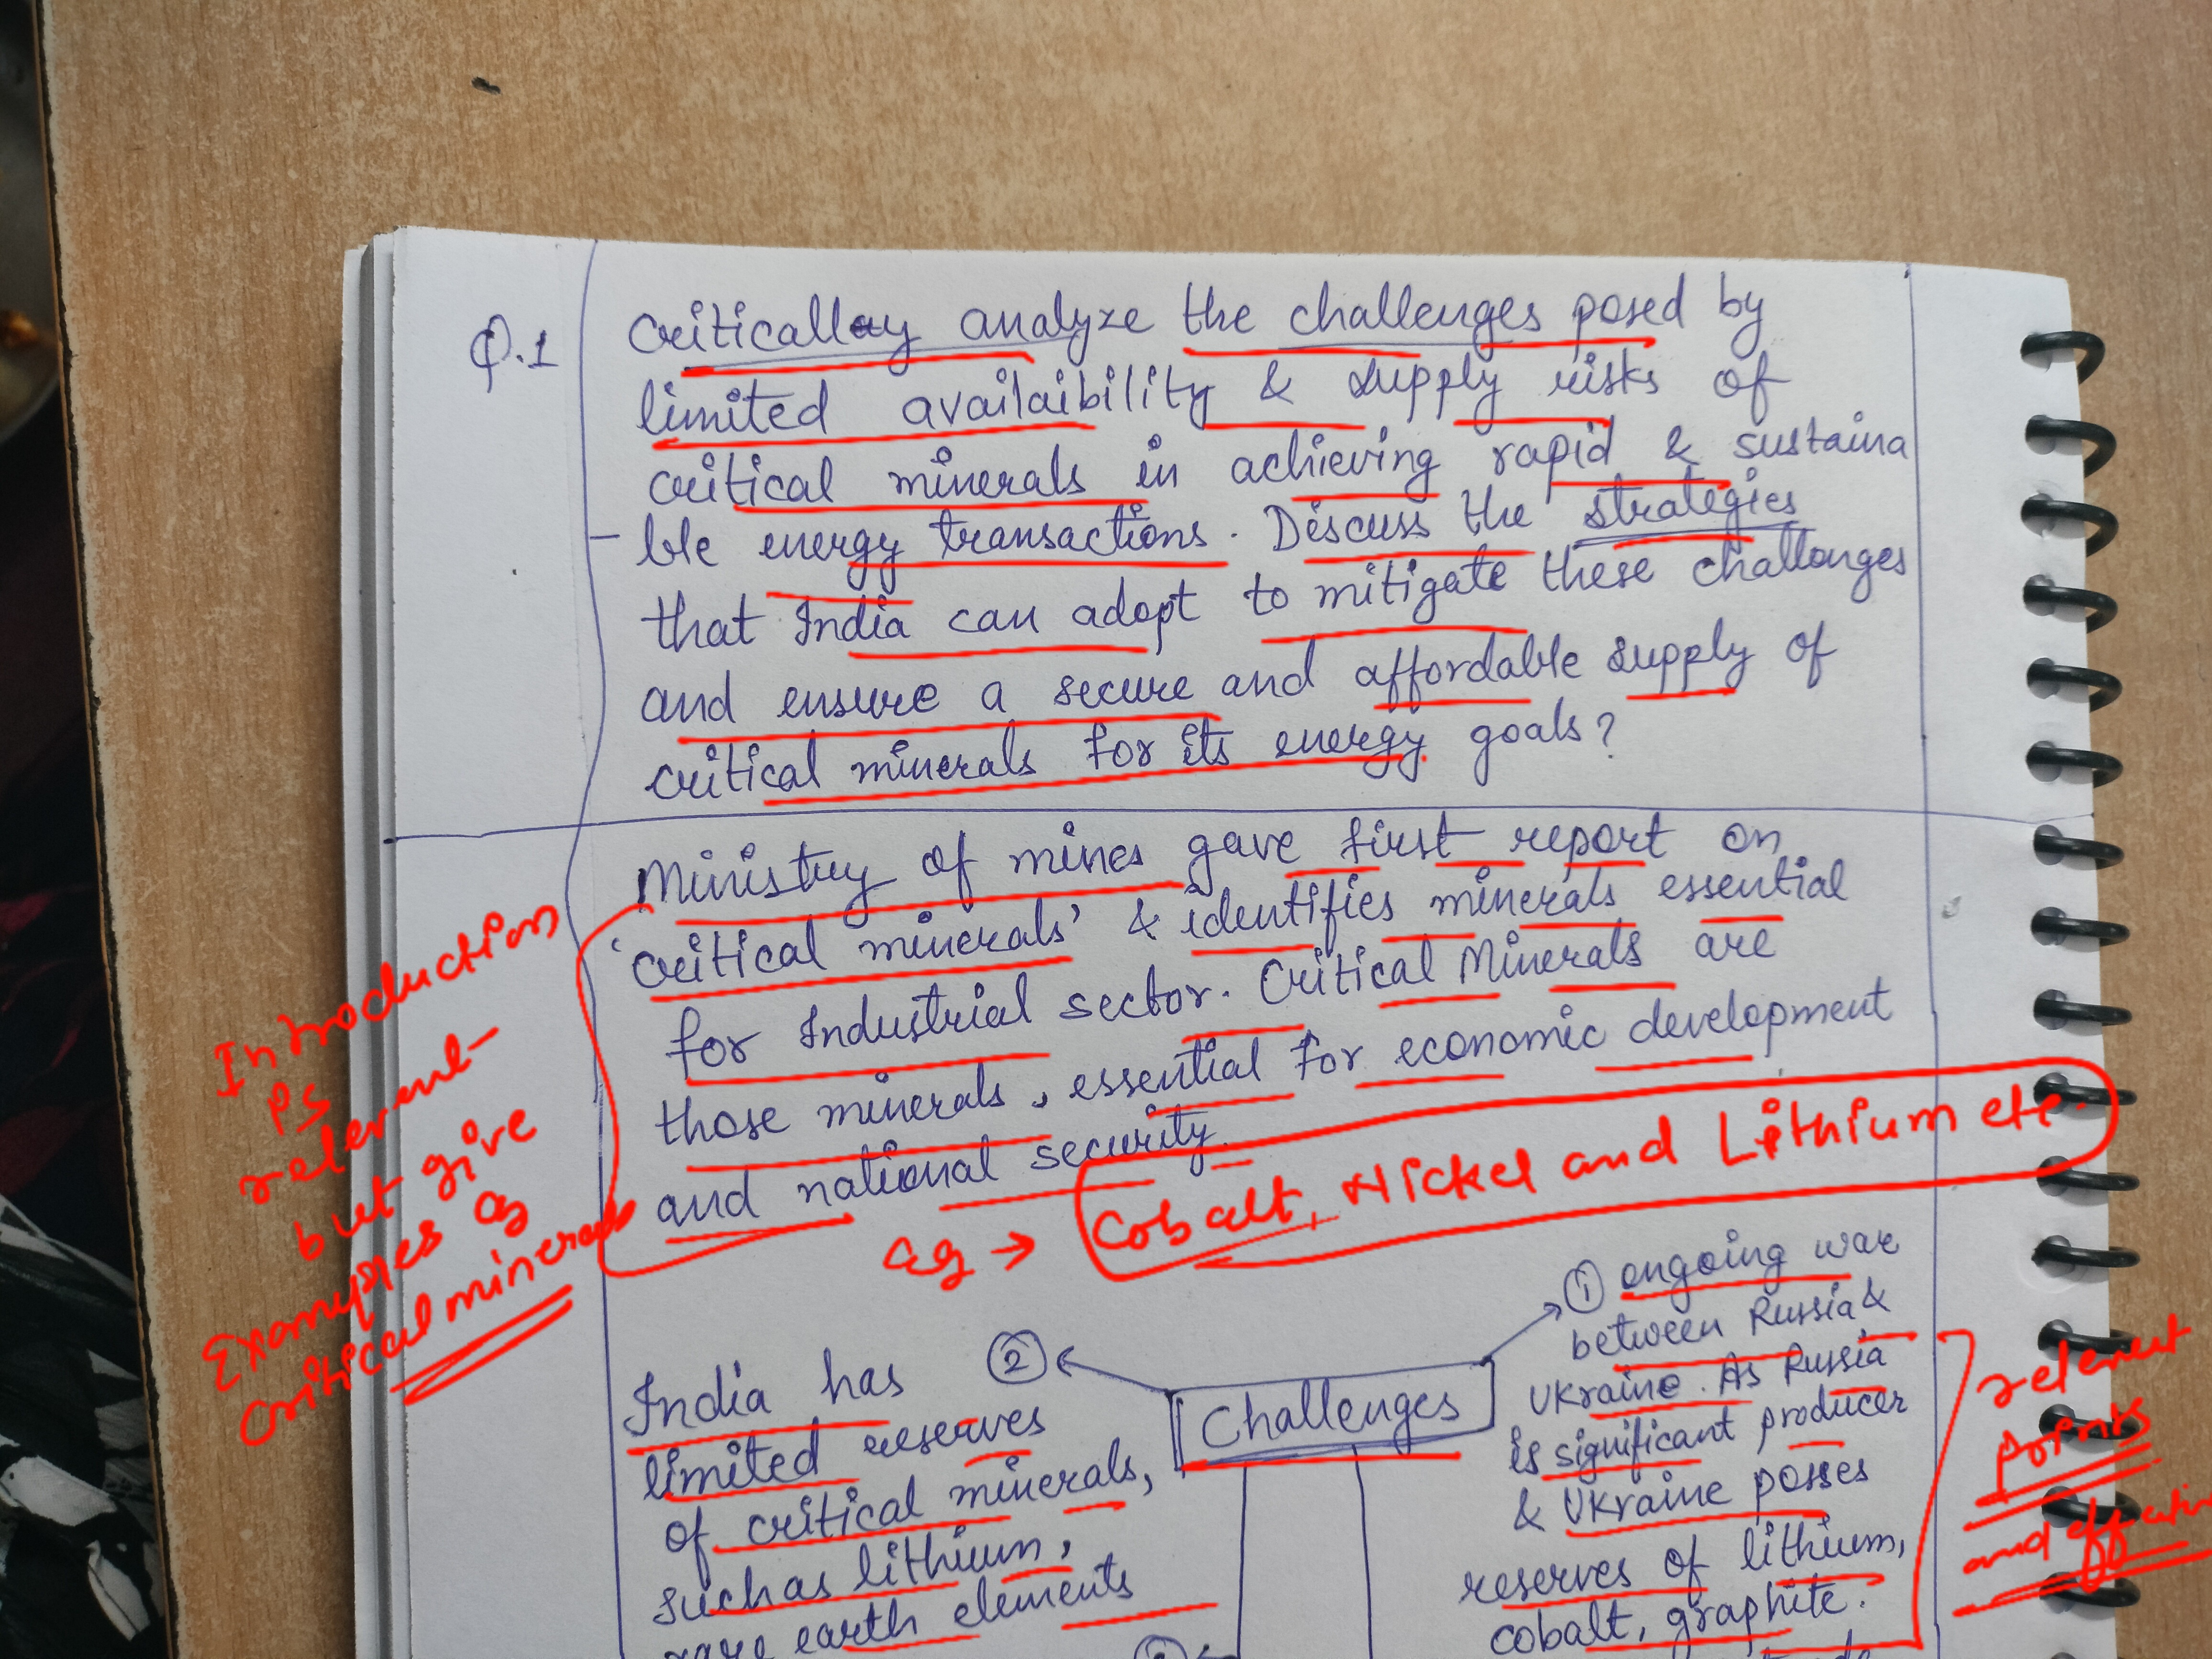 Q.1
Criticallay analyze the challenges posed by
limited availaibility & supply risks of
critical minerals in achieving rapid & sustaina
- ble energy transactions. Discuss the strategies
that India can adopt to mitigate these challenges
and ensure a secure and affordable supply of
critical minerals for its energy goals?
Ministry of mines gave first report on
'critical minerals' & identifies minerals essential
for Industrial sector. Critical Minerals are
those minerals, essential for economic development
and national security.
Introduction
is
relevent
but give
Examples of
Critical minerals
eg → Cobalt, Nickel and Lithium etc.
Challenges
① ongoing war
between Russia &
Ukraine. As Russia
is significant producer
& Ukraine posses
reserves of lithium,
cobalt, graphite.
relevent
points
and
②
India has
limited reserves
of critical minerals,
such as lithium,
rare earth elements